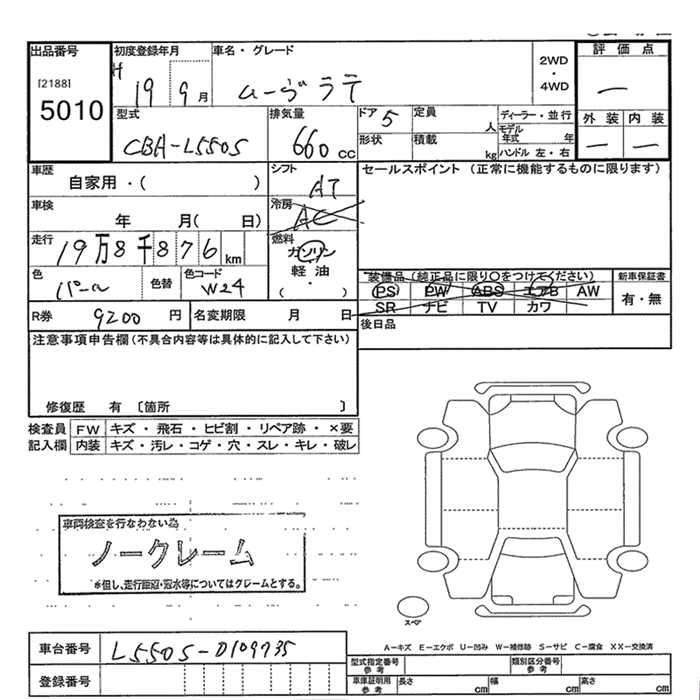 出品番号
[2188]
5010
初度登録年月
H 19 9月
車名・グレード
ムーヴラテ
2WD
・
4WD
評価点
—
外装 内装
— —
型式
CBA-L550S
排気量
660cc
ドア 5
定員 人
ディーラー・並行
モデル年式 年
形状
積載 kg
ハンドル 左・右
車歴
自家用・( )
シフト
AT
セールスポイント (正常に機能するものに限ります)
車検
年 月( 日)
冷房
AC
走行
19万8千876km
燃料
ガソリン
軽油
・
( )
色
パール
色替
色コード
W24
装備品 (純正品に限り○をつけてください)
PS PW ABS エアB AW
SR ナビ TV カワ
新車保証書
有・無
R券 9200円
名変期限 月 日
後日品
注意事項申告欄 (不具合内容等は具体的に記入して下さい)
修復歴 有 〔箇所 〕
検査員記入欄
FW キズ・飛石・ヒビ割・リペア跡・×要
内装 キズ・汚レ・コゲ・穴・スレ・キレ・破レ
車両検査を行なわない為
ノークレーム
*但し、走行距離・冠水等についてはクレームとする。
スペア
A－キズ E－エクボ U－凹み W－補修跡 S－サビ C－腐食 XX－交換済
車台番号 L550S-0109735
登録番号
型式指定番号 参考
類別区分番号 参考
車庫証明用 参考
長さ cm
幅 cm
高さ cm